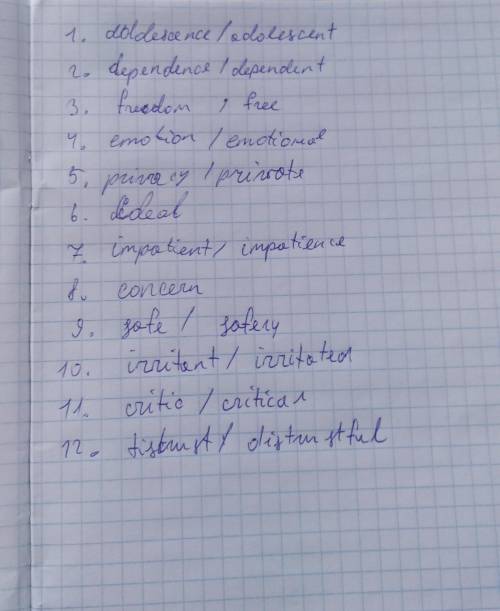 1. adoldescence / adolescent
2. dependence / dependent
3. freedom ; free
4. emotion / emotional
5. privacy / private
6. ideal
7. impatient / impatience
8. concern
9. safe / safery
10. irritant / irritated
11. critic / critical
12. distrust / distrustful